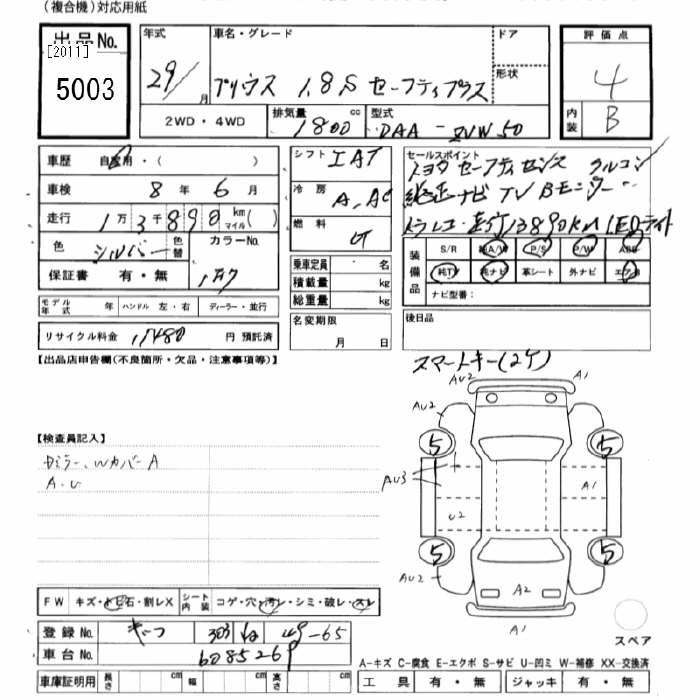 (複合機)対応用紙
出品No. [2011] 5003
年式 29/ 月
車名・グレード プリウス 1.8S セーフティプラス
ドア
形状
評価点 4
内装 B
2WD・4WD 排気量 1800 cc 型式 DAA-ZVW50
車歴 自家用・( )
車検 8年 6月
走行 1万3千890 km マイル( )
色 シルバー 色替 カラーNo. 1F7
保証書 有・無
シフト IAT
冷房 A.AC
燃料
乗車定員 名
積載量 kg
総重量 kg
セールスポイント
トヨタ セーフティセンス クルコン
純正ナビ TV Bモニター
ドラレコ 13890KM LEDライト
装備品 S/R 純A/W P/S P/W ABS
純TV 純ナビ 革シート 外ナビ エアB
ナビ型番:
モデル年式 年 ハンドル 左・右 ディーラー・並行
名変期限 月 日
後日品
リサイクル料金 11480 円 預託済
【出品店申告欄(不良箇所・欠品・注意事項等)】
スマートキー(2ケ)
AU2 A1
AU2
5 5
【検査員記入】
ミラー、Wカバー A
A.U
AU3 A1
U2
5 5
AU2
A2
A1
FW キズ・トビ石・割レX シート内装 コゲ・穴・汚レ・シミ・破レ・スレ
登録No. 303 49-65
車台No. 6085269
スペア
車庫証明用 長さ cm 幅 cm 高さ cm
A-キズ C-腐食 E-エクボ S-サビ U-凹ミ W-補修 XX-交換済
工具 有・無 ジャッキ 有・無